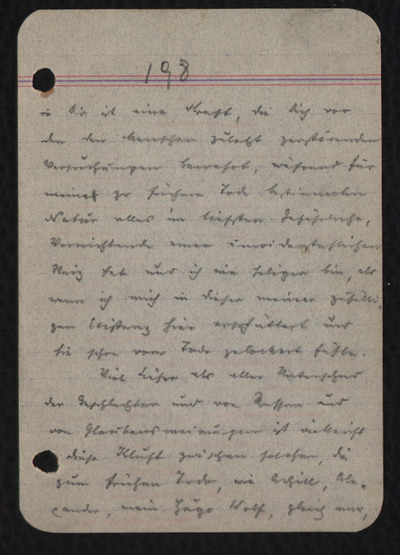 198
in dir ist eine Kraft, die dich vor
den den Menschen zuletzt zerstörenden
Versuchungen bewahrt, während für
meine zu frühem Tode bestimmten
Natur alles im tiefsten Gefährliche,
Vernichtende einen unwiderstehlichen
Reiz hat und ich nie seliger bin, als
wenn ich mich in dieser meiner zufälli-
gen Existenz hier erschüttert und
sie schon vom Tode gelockert fühle.
Viel tiefer als aller Unterschied
der Geschlechter und von Rassen und
von Glaubensmeinungen ist vielleicht
diese Kluft zwischen solchen, die
zum frühen Tode, wie Achill, Ale-
xander, mein Hugo Wolf, gleich mir,